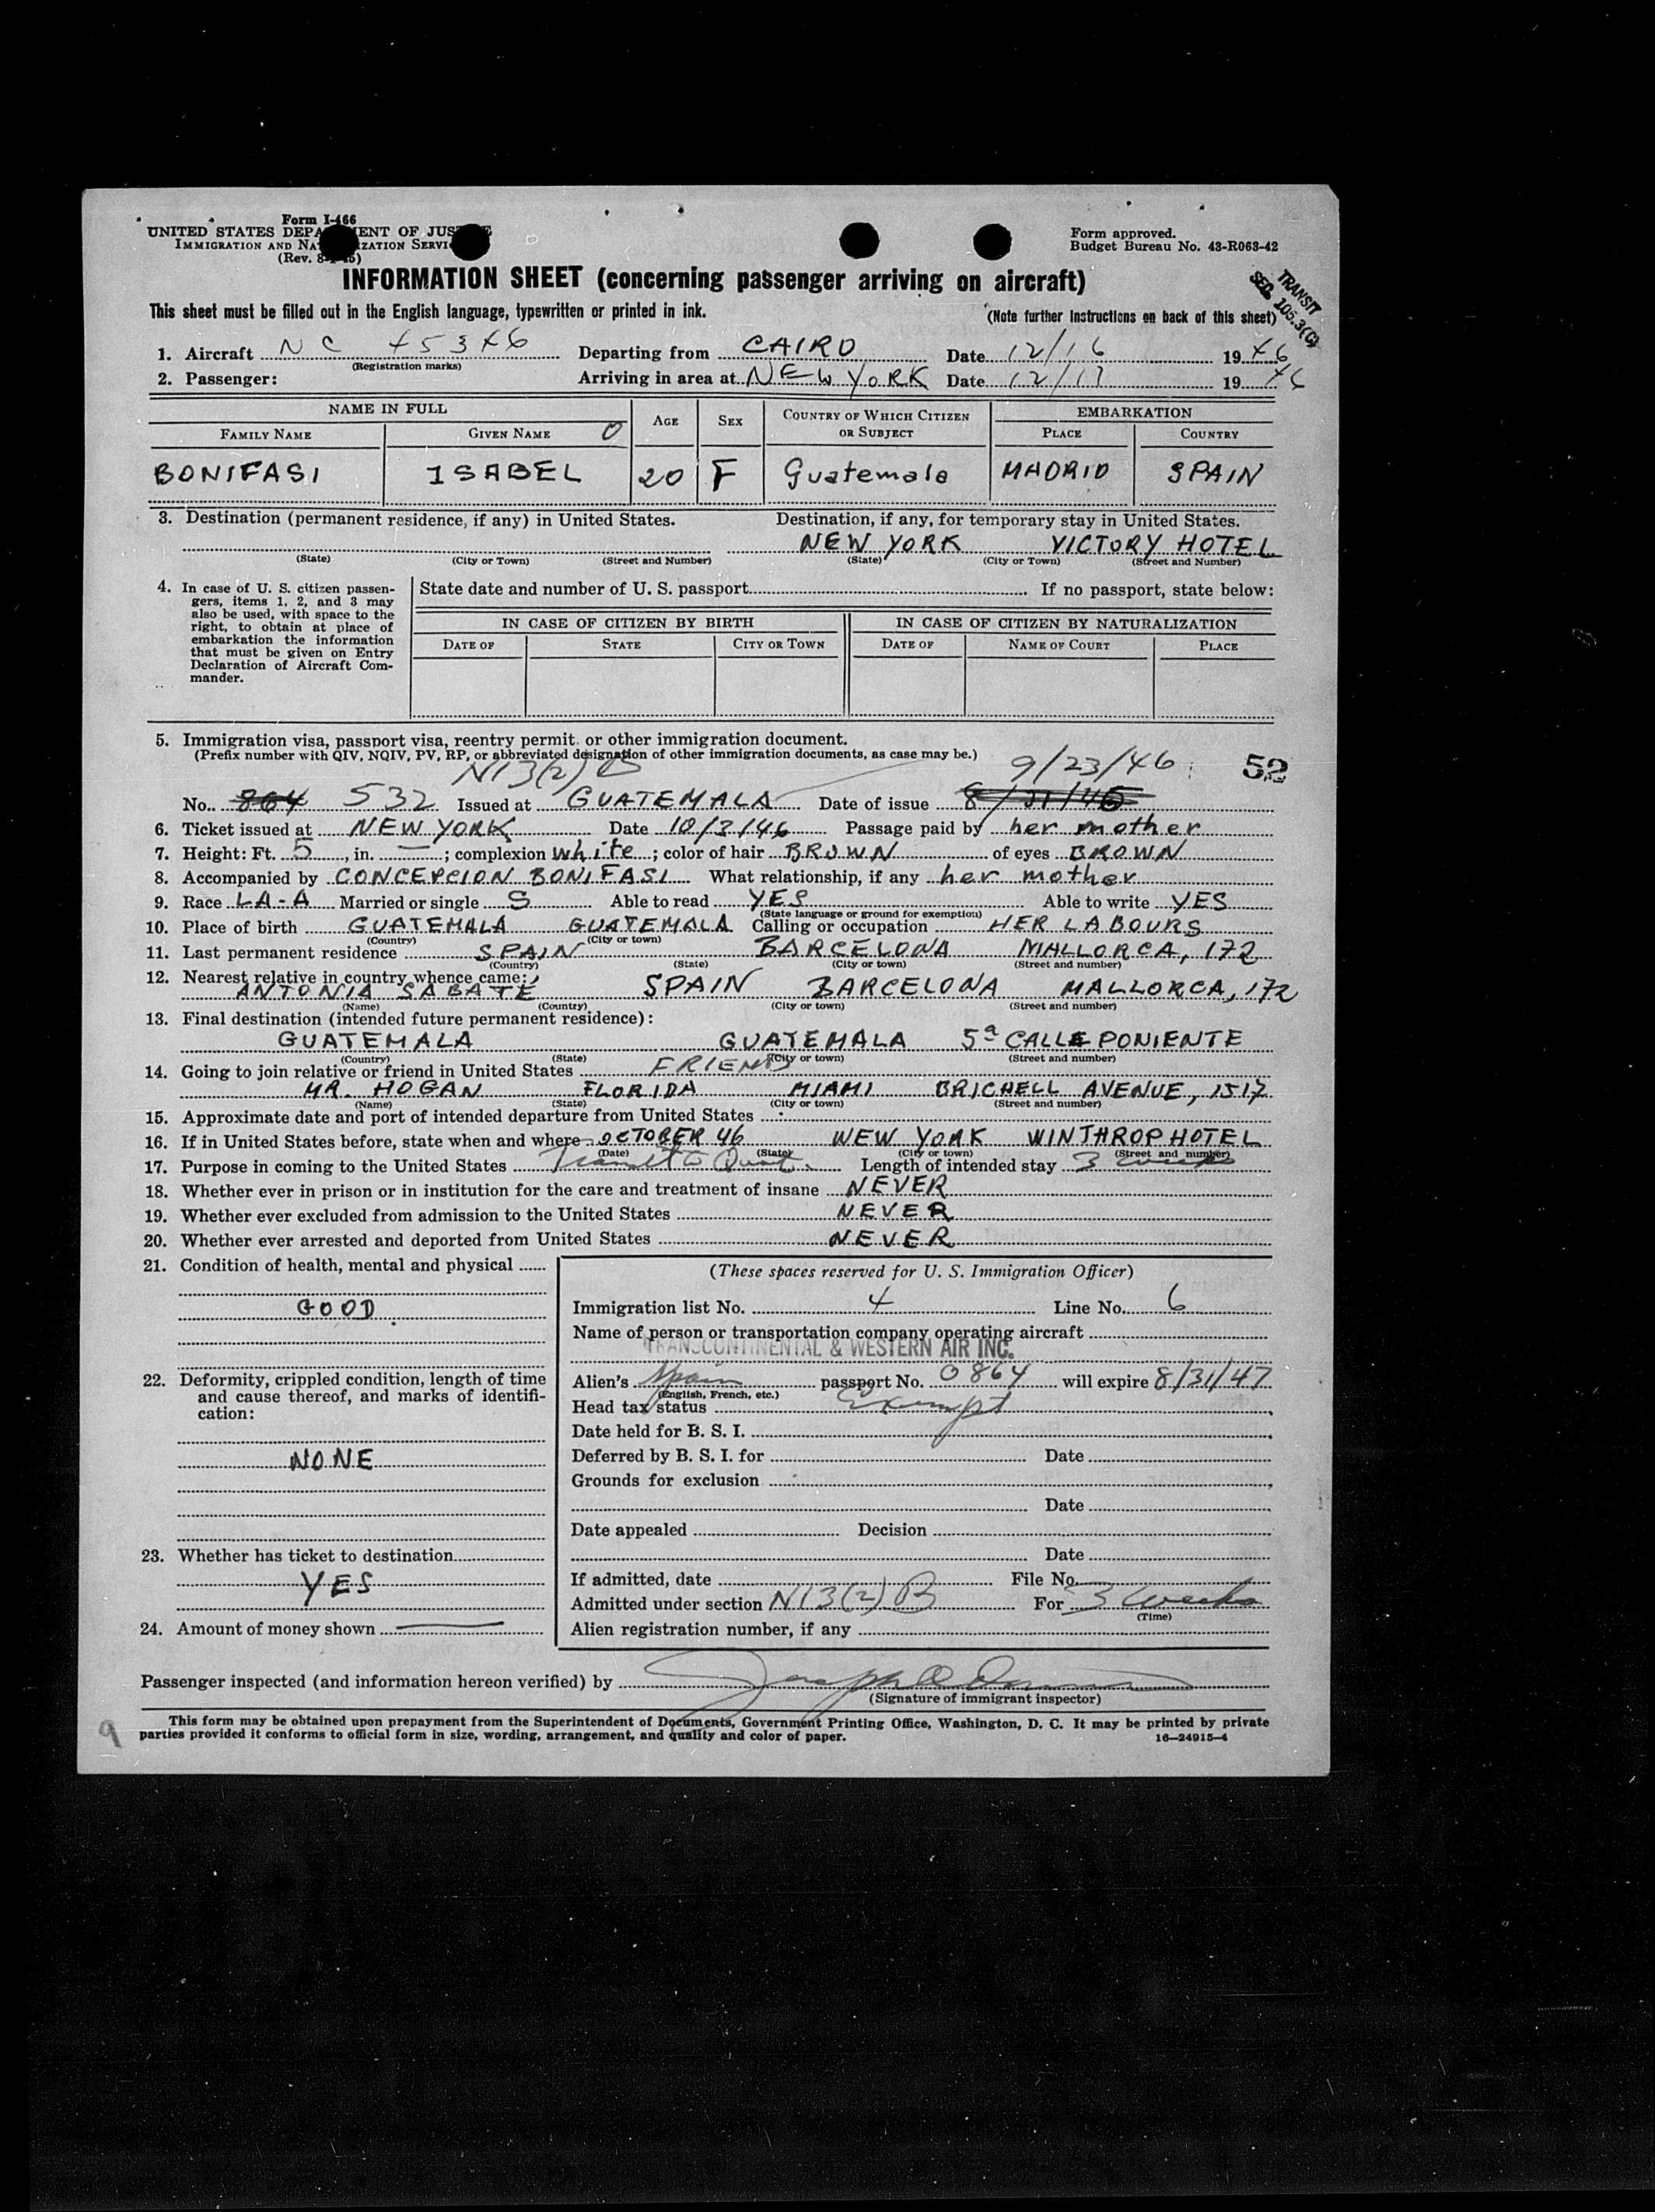 Form I-466
UNITED STATES DEPARTMENT OF JUSTICE
IMMIGRATION AND NATURALIZATION SERVICE
(Rev. 8-1-45)
Form approved.
Budget Bureau No. 43-R063-42
INFORMATION SHEET (concerning passenger arriving on aircraft)
TRANSIT
SEC. 105.3(C)
This sheet must be filled out in the English language, typewritten or printed in ink. (Note further instructions on back of this sheet)
1. Aircraft NC 45346 Departing from CAIRO Date 12/16 1946
(Registration marks)
2. Passenger: Arriving in area at NEW YORK Date 12/17 1946
NAME IN FULL AGE SEX COUNTRY OF WHICH CITIZEN OR SUBJECT EMBARKATION
FAMILY NAME GIVEN NAME PLACE COUNTRY
BONIFASI ISABEL 20 F Guatemala MADRID SPAIN
3. Destination (permanent residence, if any) in United States. Destination, if any, for temporary stay in United States.
NEW YORK VICTORY HOTEL
(State) (City or Town) (Street and Number) (State) (City or Town) (Street and Number)
4. In case of U. S. citizen passengers, items 1, 2, and 3 may also be used, with space to the right, to obtain at place of embarkation the information that must be given on Entry Declaration of Aircraft Commander.
State date and number of U. S. passport If no passport, state below:
IN CASE OF CITIZEN BY BIRTH IN CASE OF CITIZEN BY NATURALIZATION
DATE OF STATE CITY OR TOWN DATE OF NAME OF COURT PLACE
5. Immigration visa, passport visa, reentry permit, or other immigration document.
(Prefix number with QIV, NQIV, PV, RP, or abbreviated designation of other immigration documents, as case may be.)
N13(2)B 9/23/46 52
No. 864 532 Issued at GUATEMALA Date of issue 8/31/46
6. Ticket issued at NEW YORK Date 10/3/46 Passage paid by her mother
7. Height: Ft. 5, in. —; complexion white; color of hair BROWN of eyes BROWN
8. Accompanied by CONCEPCION BONIFASI What relationship, if any her mother
9. Race LA-A Married or single S Able to read YES Able to write YES
(State language or ground for exemption)
10. Place of birth GUATEMALA GUATEMALA Calling or occupation HER LABOURS
(Country) (City or town)
11. Last permanent residence SPAIN BARCELONA MALLORCA, 172
(Country) (State) (City or town) (Street and number)
12. Nearest relative in country whence came:
ANTONIA SABATÉ SPAIN BARCELONA MALLORCA, 172
(Name) (Country) (City or town) (Street and number)
13. Final destination (intended future permanent residence):
GUATEMALA GUATEMALA 5ª CALLE PONIENTE
(Country) (State) (City or town) (Street and number)
14. Going to join relative or friend in United States FRIENDS
MR. HOGAN FLORIDA MIAMI BRICHELL AVENUE, 1517
(Name) (State) (City or town) (Street and number)
15. Approximate date and port of intended departure from United States
16. If in United States before, state when and where OCTOBER 46 NEW YORK WINTHROP HOTEL
(Date) (State) (City or town) (Street and number)
17. Purpose in coming to the United States Transit to Length of intended stay 3 weeks
18. Whether ever in prison or in institution for the care and treatment of insane NEVER
19. Whether ever excluded from admission to the United States NEVER
20. Whether ever arrested and deported from United States NEVER
21. Condition of health, mental and physical
GOOD
22. Deformity, crippled condition, length of time and cause thereof, and marks of identification:
NONE
23. Whether has ticket to destination
YES
24. Amount of money shown —
(These spaces reserved for U. S. Immigration Officer)
Immigration list No. 4 Line No. 6
Name of person or transportation company operating aircraft
TRANSCONTINENTAL & WESTERN AIR INC.
Alien's Spain passport No. 0864 will expire 8/31/47
(English, French, etc.)
Head tax status Exempt
Date held for B. S. I.
Deferred by B. S. I. for Date
Grounds for exclusion
Date
Date appealed Decision
Date
If admitted, date File No.
Admitted under section N13(2)B For 3 weeks
(Time)
Alien registration number, if any
Passenger inspected (and information hereon verified) by
(Signature of immigrant inspector)
This form may be obtained upon prepayment from the Superintendent of Documents, Government Printing Office, Washington, D. C. It may be printed by private
parties provided it conforms to official form in size, wording, arrangement, and quality and color of paper. 16—24915-4
9